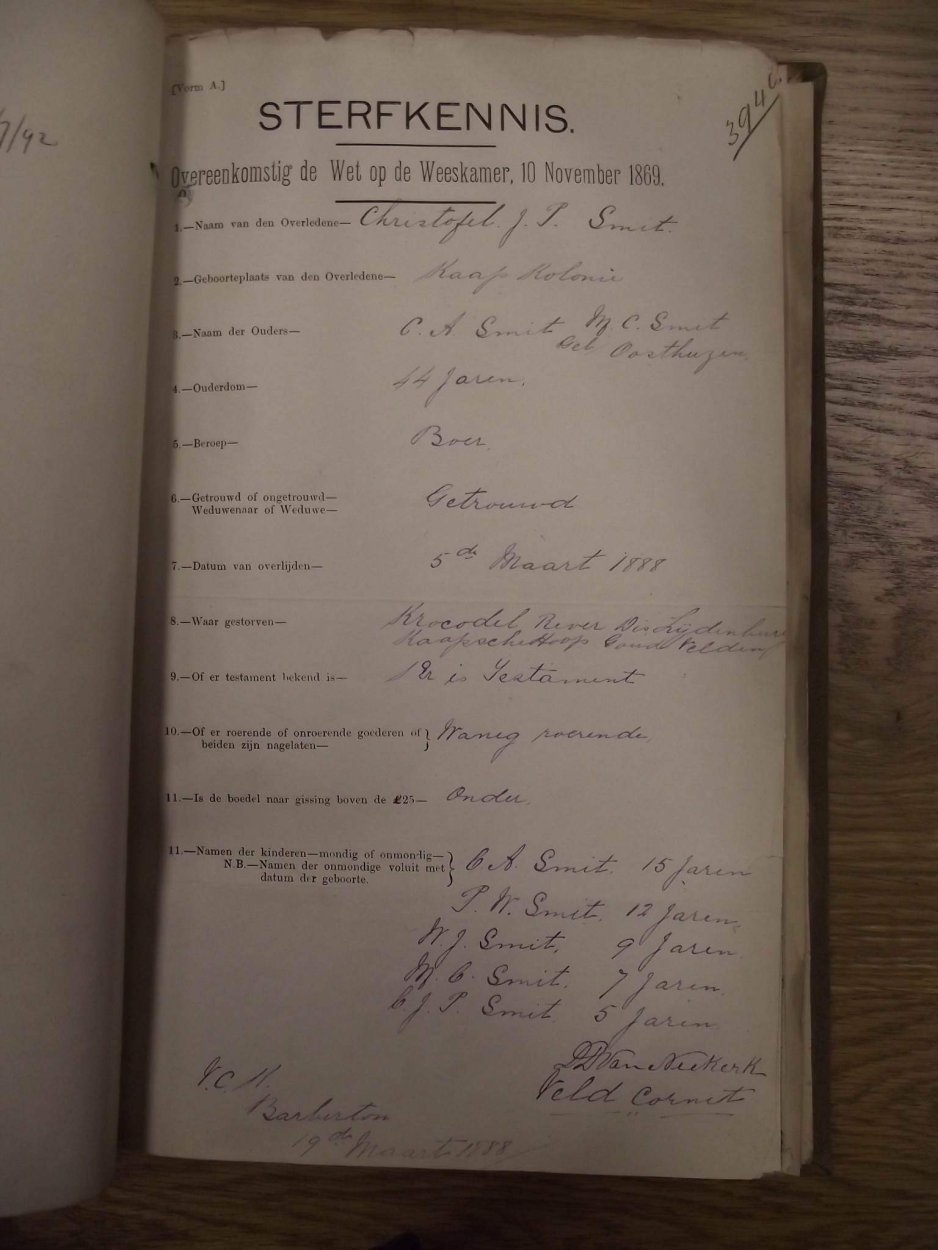 7/92
3946
[Vorm A.]
STERFKENNIS.
Overeenkomstig de Wet op de Weeskamer, 10 November 1869.
1.—Naam van den Overledene— Christofel. J. P. Smit.
2.—Geboorteplaats van den Overledene— Kaap Kolonie
3.—Naam der Ouders— C. A Smit M. C. Smit
Geb Oosthuzen.
4.—Ouderdom— 44 Jaren.
5.—Beroep— Boer.
6.—Getrouwd of ongetrouwd— Getrouwd
Weduwenaar of Weduwe—
7.—Datum van overlijden— 5de Maart 1888
8.—Waar gestorven— Krocodel River Dis Lijdenburg
Kaapsche Hoop Goud Velden
9.—Of er testament bekend is— Er is Testament
10.—Of er roerende of onroerende goederen of } Wanig roerende.
beiden zijn nagelaten—
11.—Is de boedel naar gissing boven de £25— Onder.
11.—Namen der kinderen—mondig of onmondig— } C A. Smit. 15 Jaren
N.B.—Namen der onmondige voluit met
datum der geboorte.
P. W. Smit. 12 Jaren.
W. J. Smit. 9 Jaren.
M. C. Smit. 7 Jaren.
C J. P. Smit. 5 Jaren
Van Niekerk
Veld Cornet
V. C K.
Barberton
19de Maart 1888